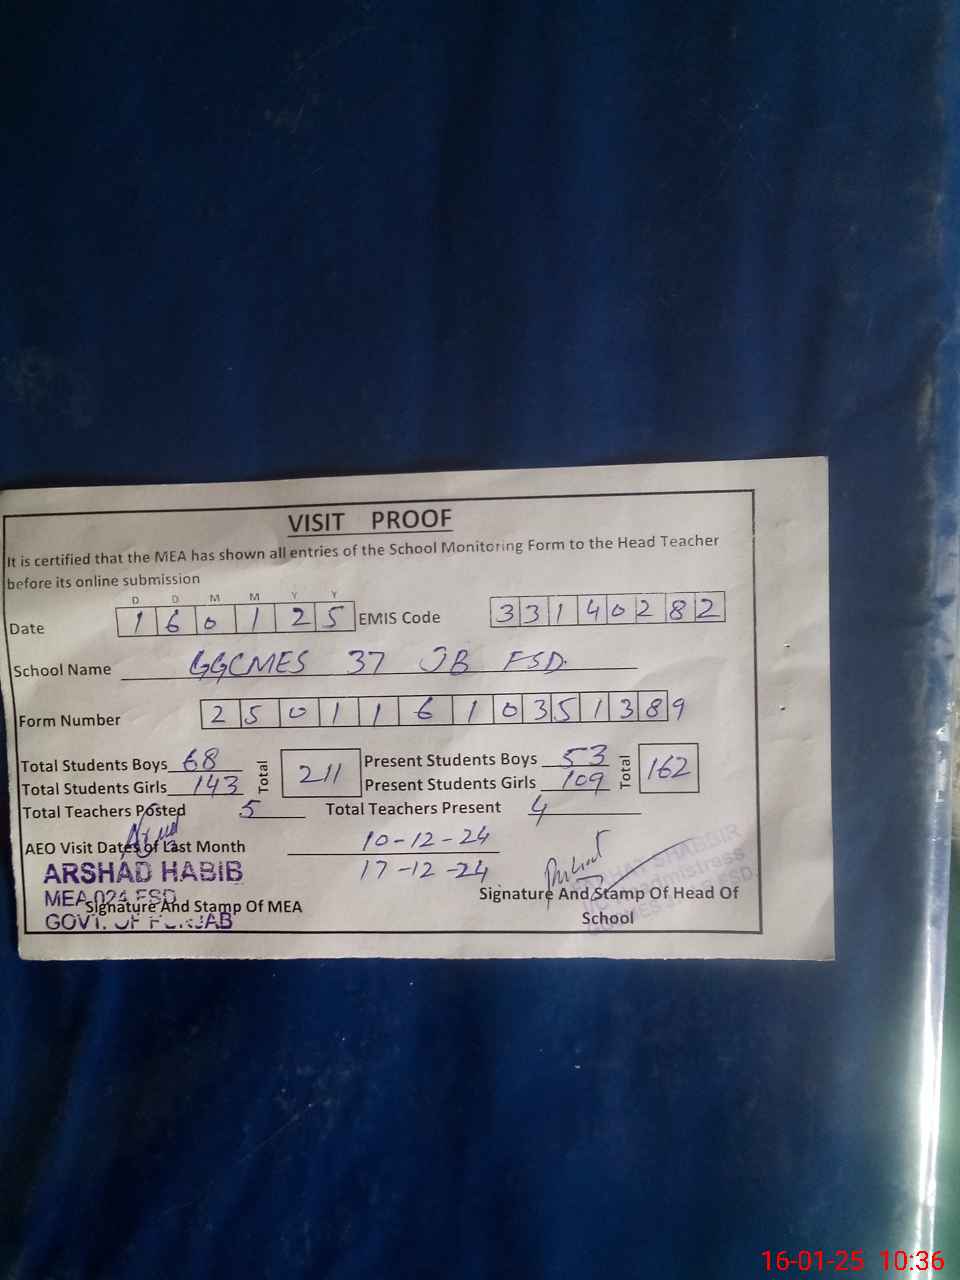 VISIT PROOF
It is certified that the MEA has shown all entries of the School Monitoring Form to the Head Teacher
before its online submission
D D M M Y Y
Date 1 6 0 1 2 5 EMIS Code 3 3 1 4 0 2 8 2
School Name GGCMES 37 JB FSD.
Form Number 2 5 0 1 1 6 1 0 3 5 1 3 8 9
Total Students Boys 68 Total 211 Present Students Boys 53 Total 162
Total Students Girls 143 Present Students Girls 109
Total Teachers Posted 5 Total Teachers Present 4
AEO Visit Dates of Last Month 10-12-24
17-12-24
ARSHAD HABIB
MEA 024 FSD
GOVT. OF PUNJAB
Signature And Stamp Of MEA
Signature And Stamp Of Head Of
School
SHABBIR
16-01-25 10:36